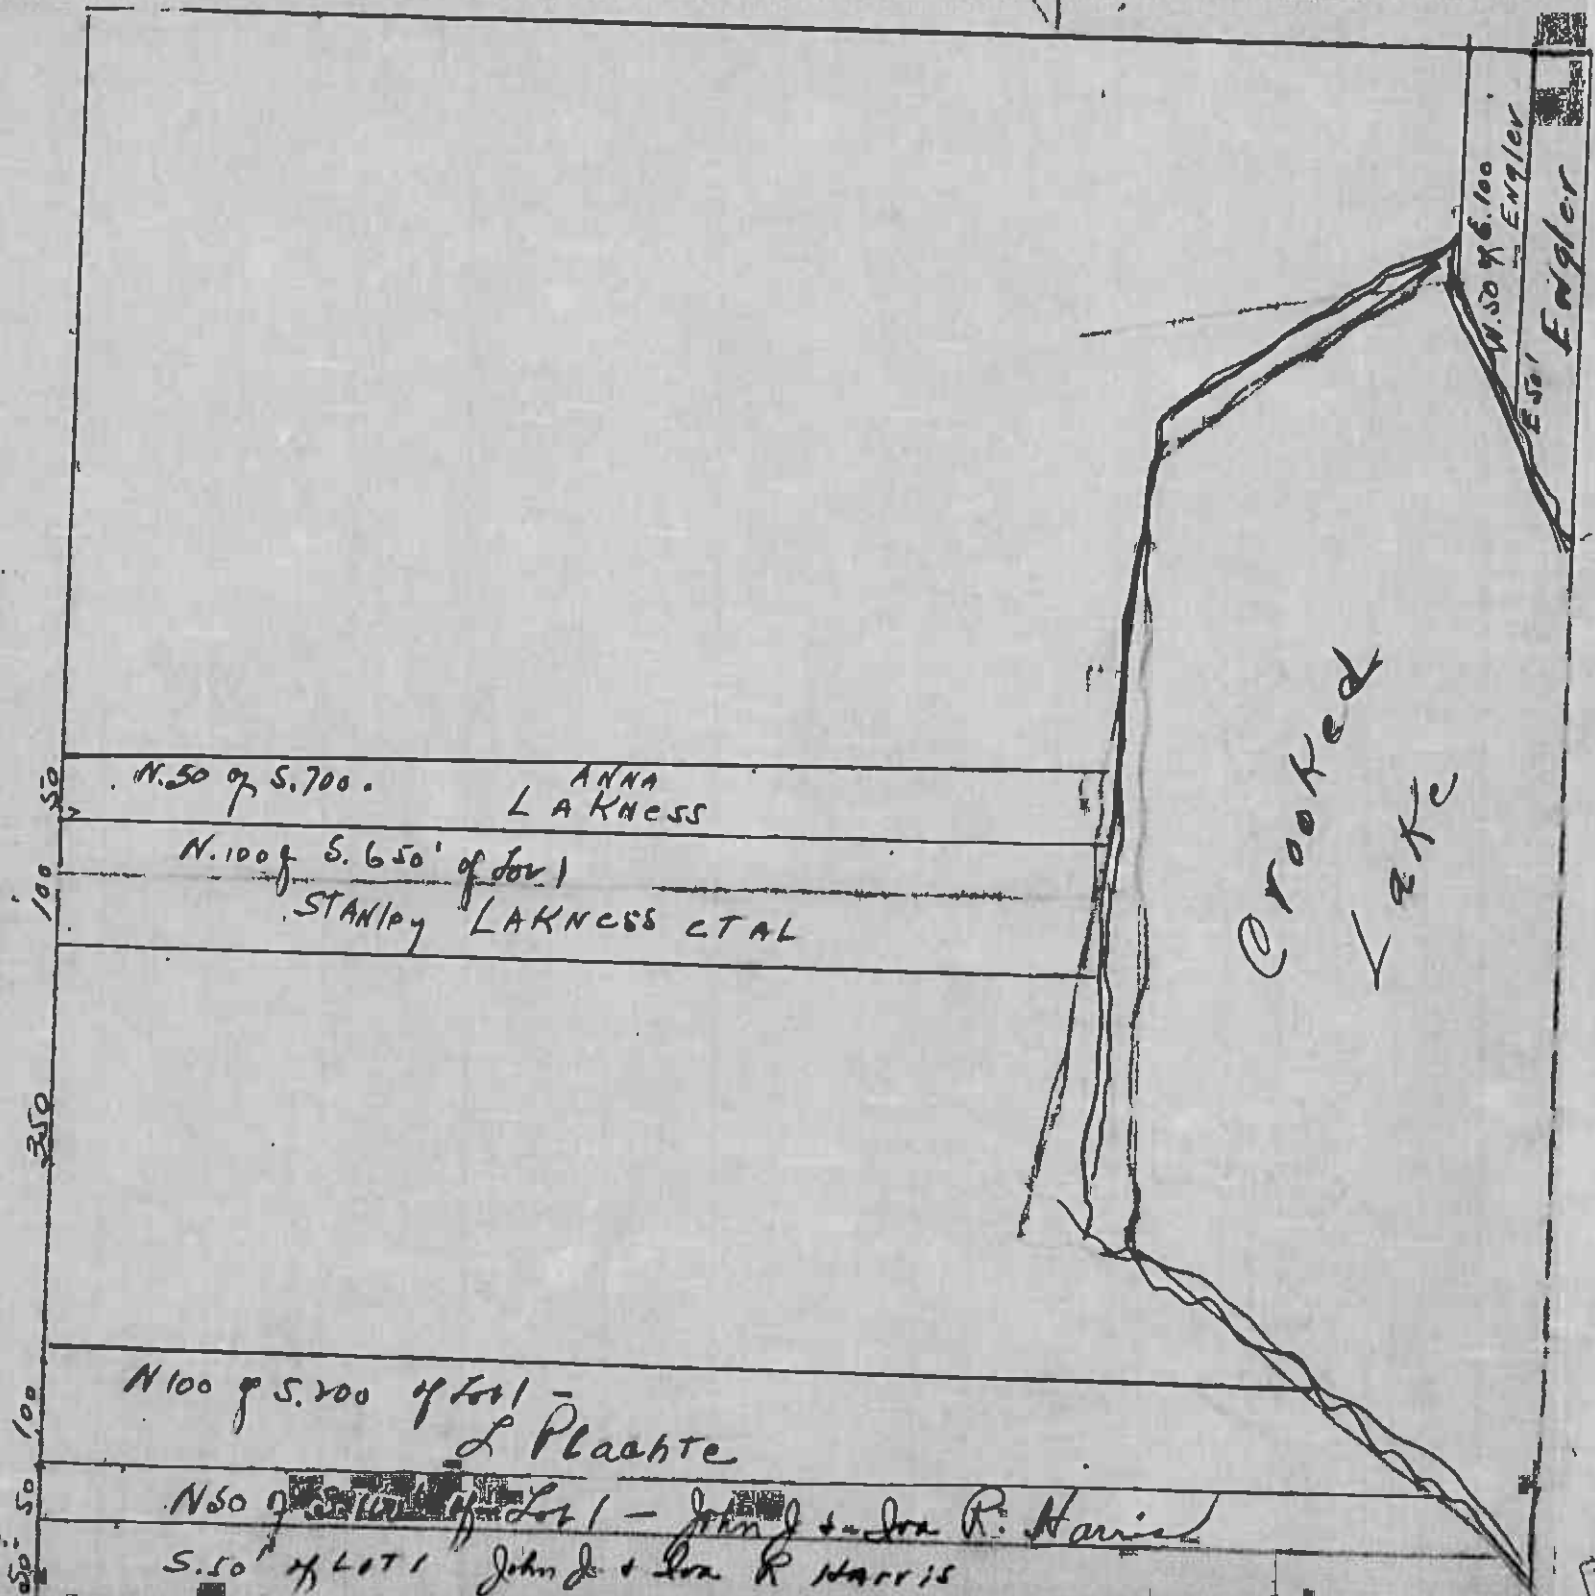 W.50 of E.100
Engler
E 50'
Engler
50
N.50 of S.700.
ANNA
LAKNESS
100
N.100 of S.650' of Lot 1
STANley LAKNESS ETAL
Crooked
Lake
350
100
N 100 of S.200 of Lot 1 -
L Plachte
50
N50 of Lot 1 - John J & R. Harris
50'
S.50' of LOT 1 John J & R HArris